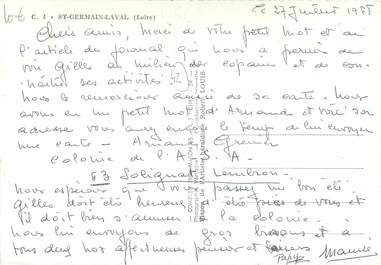 C. 4 - ST-GERMAIN-LAVAL (Loire)
Ce 27 Juillet 1988
Chers amis, Merci de votre petit mot et de
l'article du journal qui nous a permis de
voir Gilles au milieu des copains et de con-
naître ses activités
Nous le remercions aussi de sa carte. Nous
avons eu un petit mot d'Armand et voici son
adresse vous avez le temps de lui envoyer
une carte - Armand Grenier
colonie de l'A. S. A.
63 Solignat Lembron.
Nous espérons que vous passez un bon été.
Gilles doit être heureux d'être près de vous et
il doit bien s'amuser à la colonie.
Nous lui envoyons de gros bisous et à
tous deux nos affectueuses pensées et baisers
Papy Mamie